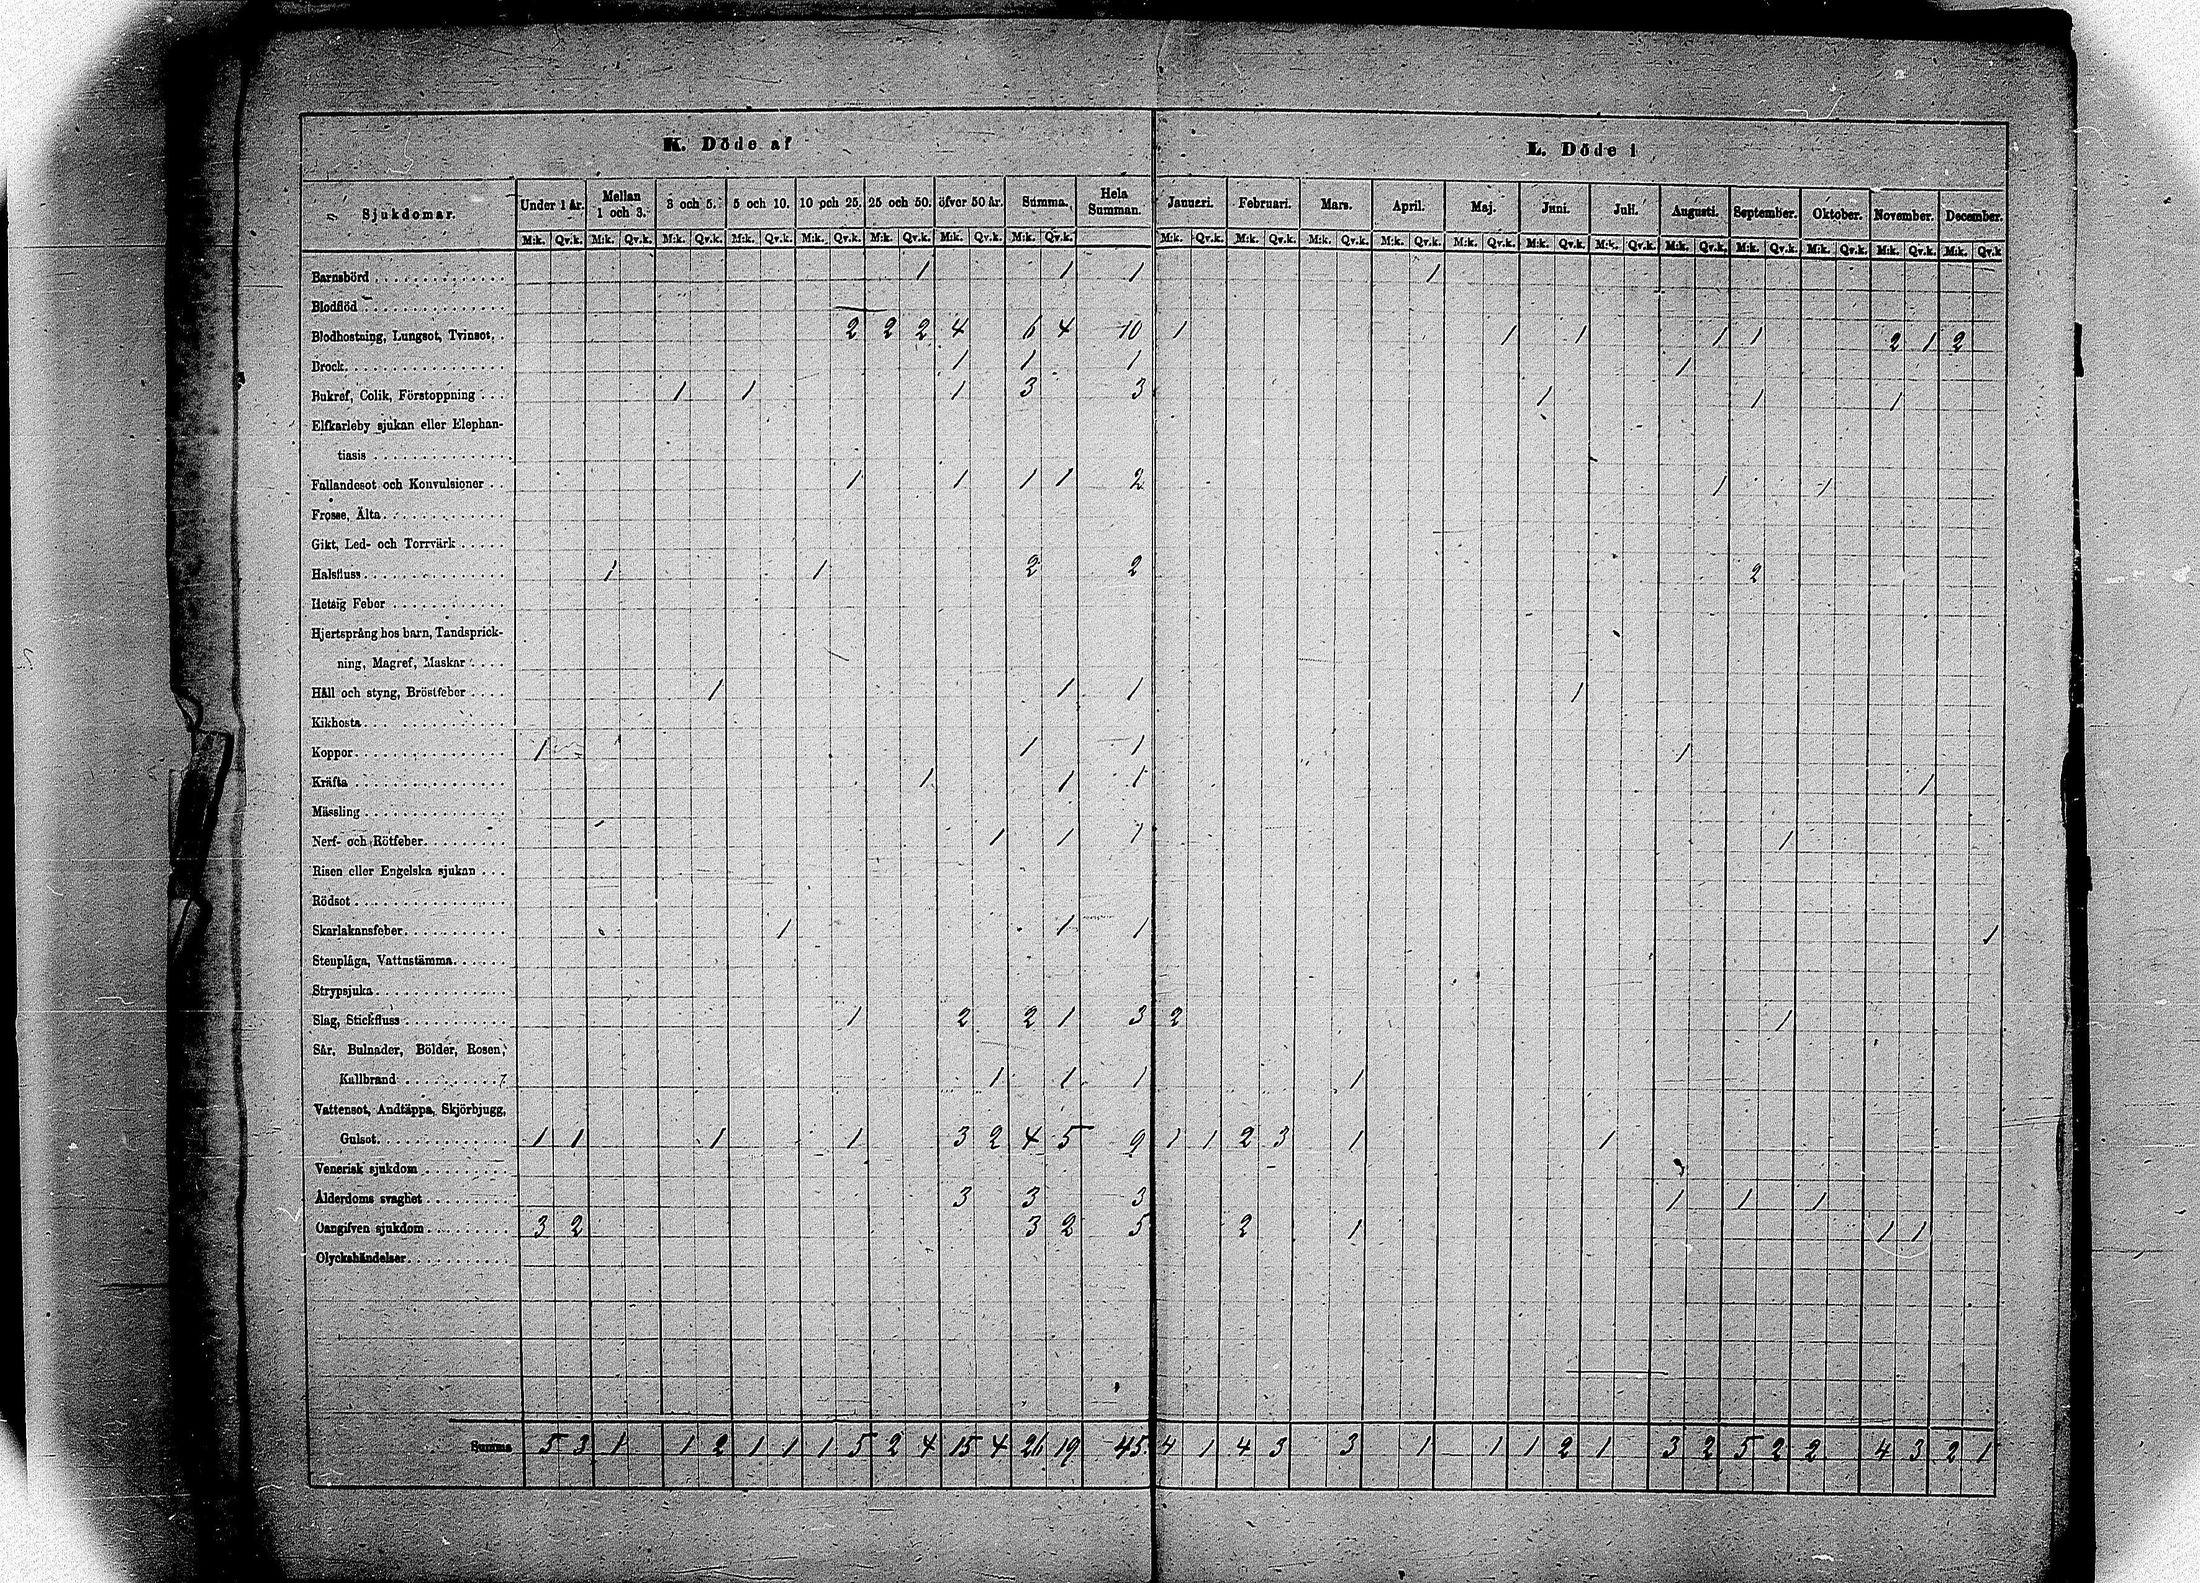 K. Döde af L. Döde i
Sjukdomar. Under 1 år. Mellan 1 och 3. 3 och 5. 5 och 10. 10 och 25. 25 och 50. öfver 50 år. Summa. Hela Summan. Januari. Februari. Mars. April. Maj. Juni. Juli. Augusti. September. Oktober. November. December.
M:k. Qv.k. M:k. Qv.k. M:k. Qv.k. M:k. Qv.k. M:k. Qv.k. M:k. Qv.k. M:k. Qv.k. M:k. Qv.k. M:k. Qv.k. M:k. Qv.k. M:k. Qv.k. M:k. Qv.k. M:k. Qv.k. M:k. Qv.k. M:k. Qv.k. M:k. Qv.k. M:k. Qv.k. M:k. Qv.k. M:k. Qv.k. M:k. Qv.k
Barnsbörd 1 1 1 1
Blodflöd
Blodhostning, Lungsot, Tvinsot, 2 2 2 4 6 4 10 1 1 1 1 1 2 1 2
Brock 1 1 1 1
Bukref, Colik, Förstoppning 1 1 1 3 3 1 1 1
Elfkarleby sjukan eller Elephan-
tiasis
Fallandesot och Konvulsioner 1 1 1 1 2 1 1
Frosse, Älta
Gikt, Led- och Torrvärk
Halsfluss 1 1 2 2 2
Hetsig Feber
Hjertsprång hos barn, Tandsprick-
ning, Magref, Maskar
Håll och styng, Bröstfeber 1 1 1 1
Kikhosta
Koppor 1 1 1 1
Kräfta 1 1 1 1
Mässling
Nerf- och Rötfeber 1 1 1 1
Risen eller Engelska sjukan
Rödsot
Skarlakansfeber 1 1 1 1
Stenplåga, Vattustämma
Strypsjuka
Slag, Stickfluss 1 2 2 1 3 2 1
Sår, Bulnader, Bölder, Rosen,
Kallbrand 1 1 1 1
Vattensot, Andtäppa, Skjörbjugg,
Gulsot 1 1 1 1 3 2 4 5 9 1 1 2 3 1 1
Venerisk sjukdom
Ålderdoms svaghet 3 3 3 1 1 1
Oangifven sjukdom 3 2 3 2 5 2 1 1 1
Olyckshändelser
Summa 5 3 1 1 2 1 1 1 5 2 4 15 4 26 19 45 4 1 4 3 3 1 1 1 2 1 3 2 5 2 2 4 3 2 1